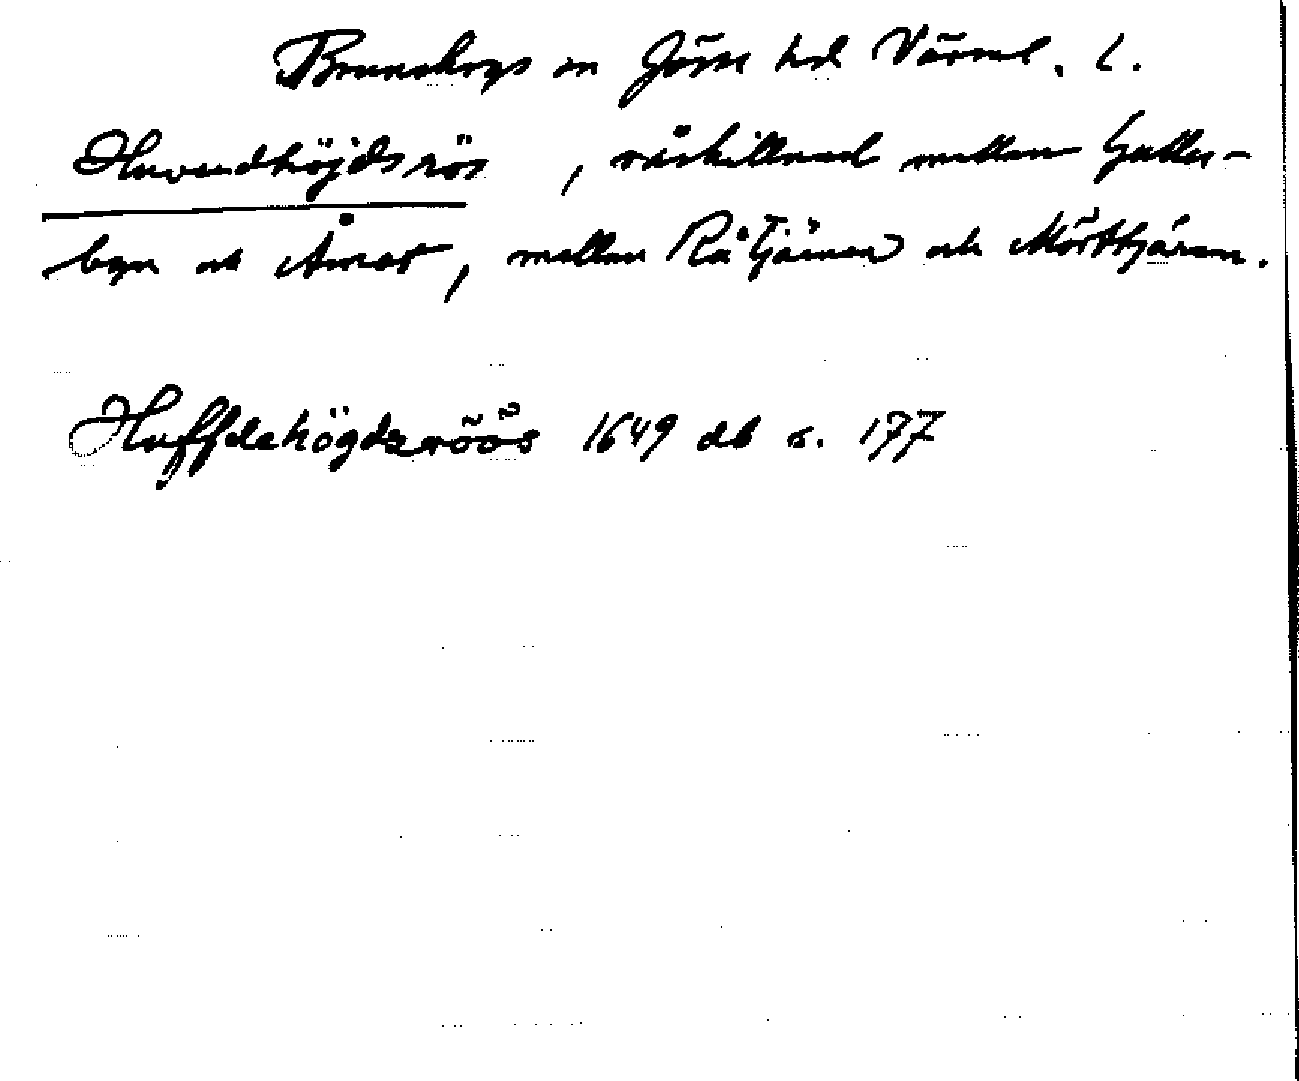 Brunskogs sn Jösse hd Värml. l.
Huvudhöjdsrös, råskillnad mellan Gullers-
byn och Åmot, mellan Råtjärnen och Mörttjärn.
Huffdehögdzröös 1649 db s. 177